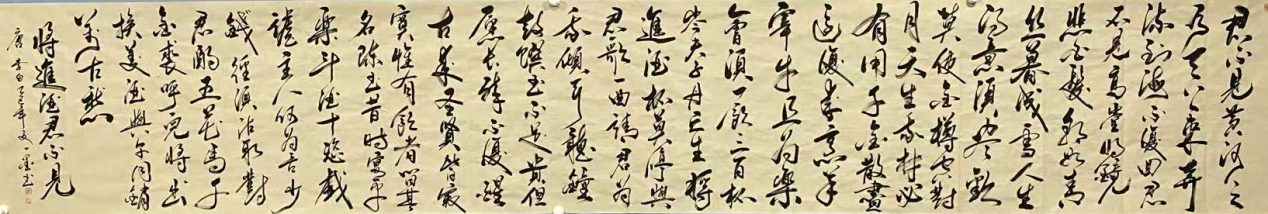 君不見黄河之
水天上來奔
流到海不復回君
不見高堂明鏡
悲白髮朝如青
丝暮成雪人生
得意須盡歡
莫使金樽空對
月天生我材必
有用千金散盡
還復来烹羊
宰牛且为樂
會須一飲三百杯
岑夫子丹丘生將
進酒杯莫停與
君歌一曲請君为
我傾耳聽鐘
鼓饌玉不足貴但
願長醉不復醒
古来聖賢皆寂
寞惟有飲者留其
名陈王昔時宴平
樂斗酒十千恣歡
謔主人何为言少
錢徑須沽取對
君酌五花馬千
金裘呼兒將出
換美酒與尔同銷
萬古愁
將進酒君不見
唐李白